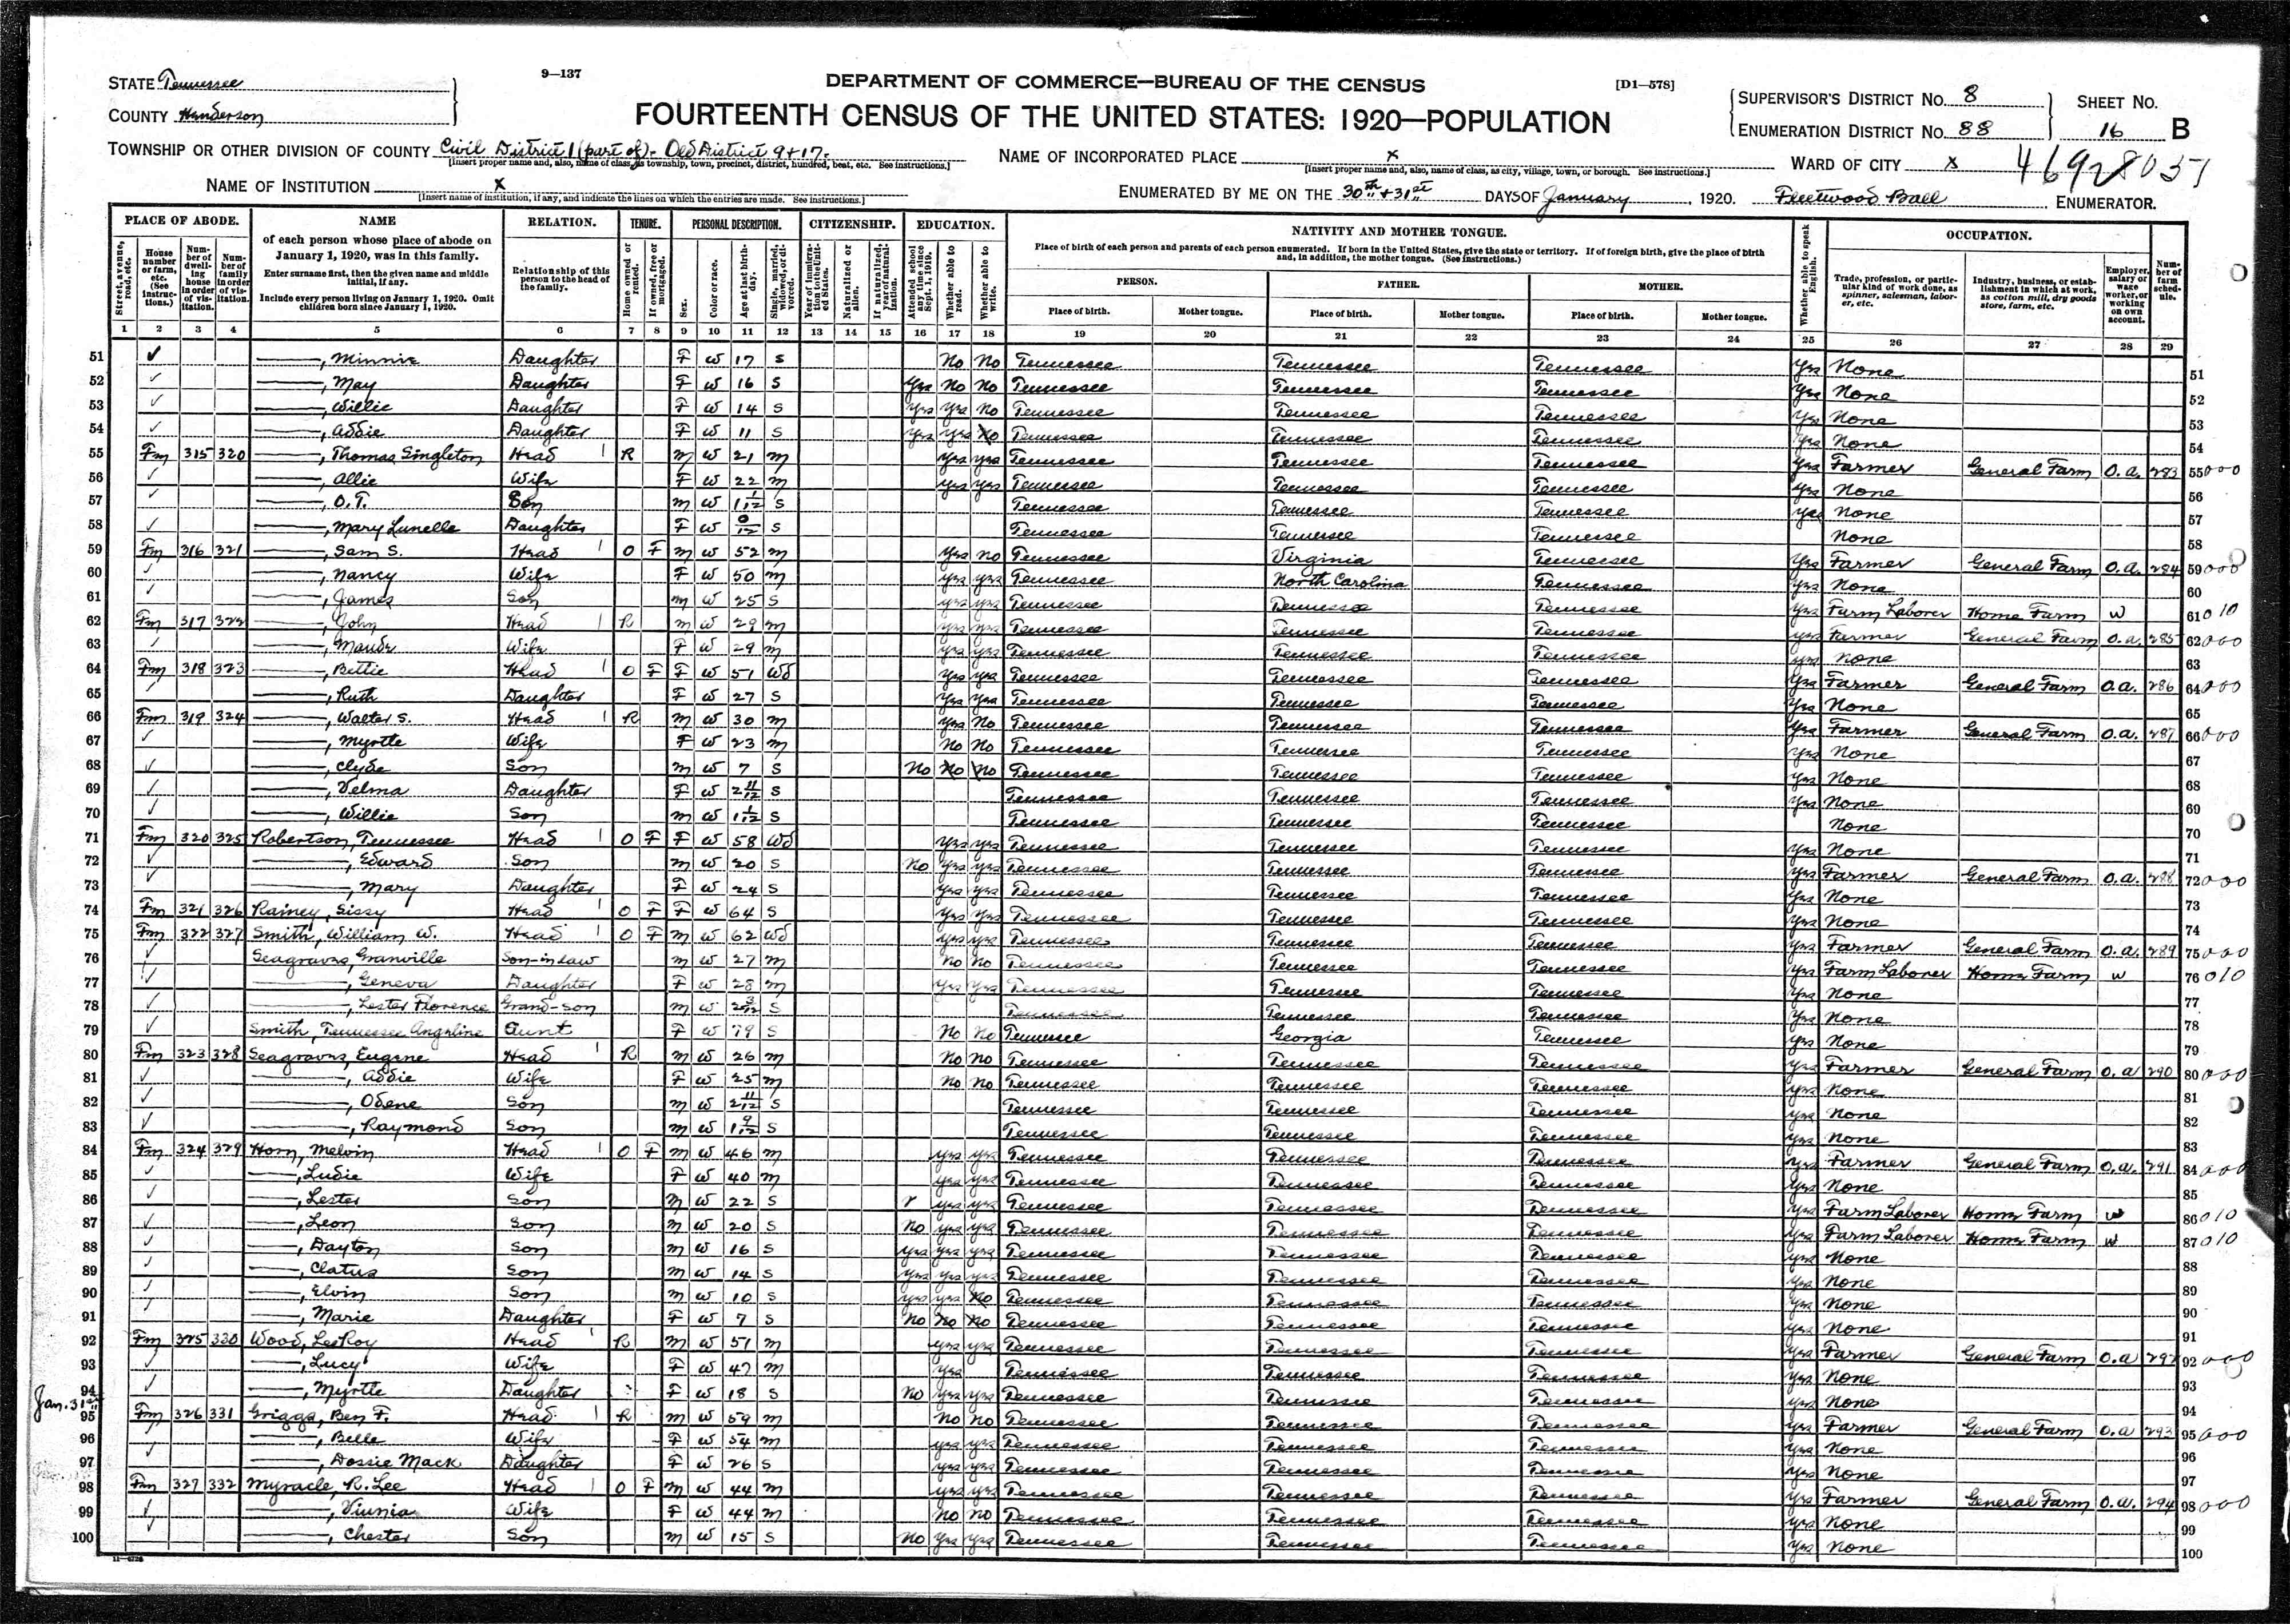 9—137
DEPARTMENT OF COMMERCE—BUREAU OF THE CENSUS
[D1—578]
FOURTEENTH CENSUS OF THE UNITED STATES: 1920—POPULATION
STATE Tennessee
COUNTY Henderson
SUPERVISOR'S DISTRICT NO. 8
ENUMERATION DISTRICT NO. 88
SHEET NO.
16 B
TOWNSHIP OR OTHER DIVISION OF COUNTY Civil District 1 (part of) - Old District 9 + 17.
[Insert proper name and, also, name of class, as township, town, precinct, district, hundred, beat, etc. See instructions.]
NAME OF INCORPORATED PLACE x
[Insert proper name and, also, name of class, as city, village, town, or borough. See instructions.]
WARD OF CITY x
NAME OF INSTITUTION x
[Insert name of institution, if any, and indicate the lines on which the entries are made. See instructions.]
ENUMERATED BY ME ON THE 30th + 31st DAYS OF January, 1920. Fleetwood Ball ENUMERATOR.
PLACE OF ABODE. NAME RELATION. TENURE. PERSONAL DESCRIPTION. CITIZENSHIP. EDUCATION. NATIVITY AND MOTHER TONGUE. OCCUPATION.
1 2 3 4 5 6 7 8 9 10 11 12 13 14 15 16 17 18 19 20 21 22 23 24 25 26 27 28 29
51 —, Minnie Daughter F W 17 S No No Tennessee Tennessee Tennessee Yes None
52 —, May Daughter F W 16 S Yes No No Tennessee Tennessee Tennessee Yes None
53 —, Willie Daughter F W 14 S Yes Yes No Tennessee Tennessee Tennessee Yes None
54 —, Addie Daughter F W 11 S Yes Yes No Tennessee Tennessee Tennessee Yes None
55 Fm 315 320 —, Thomas Singleton Head R M W 21 M Yes Yes Tennessee Tennessee Tennessee Yes Farmer General Farm O.A. 283
56 —, Allie Wife F W 22 M Yes Yes Tennessee Tennessee Tennessee Yes None
57 —, O.T. Son M W 1 1/12 S Tennessee Tennessee Tennessee Yes None
58 —, Mary Lunelle Daughter F W 0/12 S Tennessee Tennessee Tennessee None
59 Fm 316 321 —, Sam S. Head O F M W 52 M Yes No Tennessee Virginia Tennessee Yes Farmer General Farm O.A. 284
60 —, Nancy Wife F W 50 M Yes Yes Tennessee North Carolina Tennessee Yes None
61 —, James Son M W 25 S Yes Yes Tennessee Tennessee Tennessee Yes Farm Laborer Home Farm W
62 Fm 317 322 —, John Head R M W 29 M Yes Yes Tennessee Tennessee Tennessee Yes Farmer General Farm O.A. 285
63 —, Maude Wife F W 29 M Yes Yes Tennessee Tennessee Tennessee Yes None
64 Fm 318 323 —, Bettie Head O F F W 51 Wd Yes Yes Tennessee Tennessee Tennessee Yes Farmer General Farm O.A. 286
65 —, Ruth Daughter F W 27 S Yes Yes Tennessee Tennessee Tennessee Yes None
66 Fm 319 324 —, Walter S. Head R M W 30 M Yes No Tennessee Tennessee Tennessee Yes Farmer General Farm O.A. 287
67 —, Myrtle Wife F W 23 M No No Tennessee Tennessee Tennessee Yes None
68 —, Clyde Son M W 7 S No No No Tennessee Tennessee Tennessee Yes None
69 —, Velma Daughter F W 2 11/12 S Tennessee Tennessee Tennessee Yes None
70 —, Willie Son M W 1 1/12 S Tennessee Tennessee Tennessee None
71 Fm 320 325 Robertson, Tennessee Head O F F W 58 Wd Yes Yes Tennessee Tennessee Tennessee Yes None
72 —, Edward Son M W 20 S No Yes Yes Tennessee Tennessee Tennessee Yes Farmer General Farm O.A. 288
73 —, Mary Daughter F W 24 S Yes Yes Tennessee Tennessee Tennessee Yes None
74 Fm 321 326 Rainey, Sissy Head O F F W 64 S Yes Yes Tennessee Tennessee Tennessee Yes None
75 Fm 322 327 Smith, William W. Head O F M W 62 Wd Yes Yes Tennessee Tennessee Tennessee Yes Farmer General Farm O.A. 289
76 Seagraves, Granville Son-in-law M W 27 M No No Tennessee Tennessee Tennessee Yes Farm Laborer Home Farm W
77 —, Geneva Daughter F W 28 M Yes Yes Tennessee Tennessee Tennessee Yes None
78 —, Lester Florence Grand-son M W 2 3/12 S Tennessee Tennessee Tennessee Yes None
79 Smith, Tennessee Angeline Aunt F W 79 S No No Tennessee Georgia Tennessee Yes None
80 Fm 323 328 Seagraves, Eugene Head R M W 26 M No No Tennessee Tennessee Tennessee Yes Farmer General Farm O.A. 290
81 —, Addie Wife F W 25 M No No Tennessee Tennessee Tennessee Yes None
82 —, Odene Son M W 2 11/12 S Tennessee Tennessee Tennessee Yes None
83 —, Raymond Son M W 1 9/12 S Tennessee Tennessee Tennessee Yes None
84 Fm 324 329 Horn, Melvin Head O F M W 46 M Yes Yes Tennessee Tennessee Tennessee Yes Farmer General Farm O.A. 291
85 —, Ludie Wife F W 40 M Yes Yes Tennessee Tennessee Tennessee Yes None
86 —, Lester Son M W 22 S Yes Yes Tennessee Tennessee Tennessee Yes Farm Laborer Home Farm W
87 —, Leon Son M W 20 S No Yes Yes Tennessee Tennessee Tennessee Yes Farm Laborer Home Farm W
88 —, Dayton Son M W 16 S Yes Yes Yes Tennessee Tennessee Tennessee Yes None
89 —, Clatus Son M W 14 S Yes Yes Yes Tennessee Tennessee Tennessee Yes None
90 —, Elvin Son M W 10 S Yes Yes No Tennessee Tennessee Tennessee Yes None
91 —, Marie Daughter F W 7 S No No No Tennessee Tennessee Tennessee Yes None
92 Fm 325 330 Wood, LeeRoy Head R M W 51 M Yes Yes Tennessee Tennessee Tennessee Yes Farmer General Farm O.A. 292
93 —, Lucy Wife F W 47 M Yes Tennessee Tennessee Tennessee Yes None
94 —, Myrtle Daughter F W 18 S No Yes Yes Tennessee Tennessee Tennessee Yes None
Jan. 31st
95 Fm 326 331 Griggs, Ben F. Head R M W 59 M No No Tennessee Tennessee Tennessee Yes Farmer General Farm O.A. 293
96 —, Belle Wife F W 54 M Yes Yes Tennessee Tennessee Tennessee Yes None
97 —, Dossie Mack Daughter F W 26 S Yes Yes Tennessee Tennessee Tennessee Yes None
98 Fm 327 332 Myracle, R. Lee Head O F M W 44 M Yes Yes Tennessee Tennessee Tennessee Yes Farmer General Farm O.A. 294
99 —, Viunia Wife F W 44 M No No Tennessee Tennessee Tennessee Yes None
100 —, Chester Son M W 15 S No Yes Yes Tennessee Tennessee Tennessee Yes None